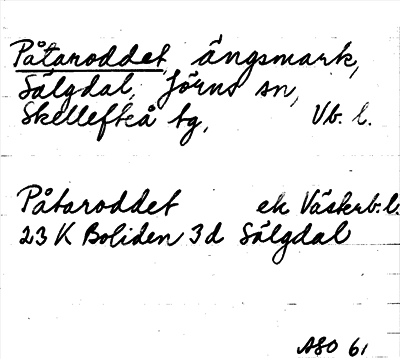 Påtaroddet, ängsmark,
Sälgdal, Jörns sn,
Skellefteå tg, Vb. l.
Påtaroddet ek Västerb.l.
23 K Boliden 3d Sälgdal
ASO 61